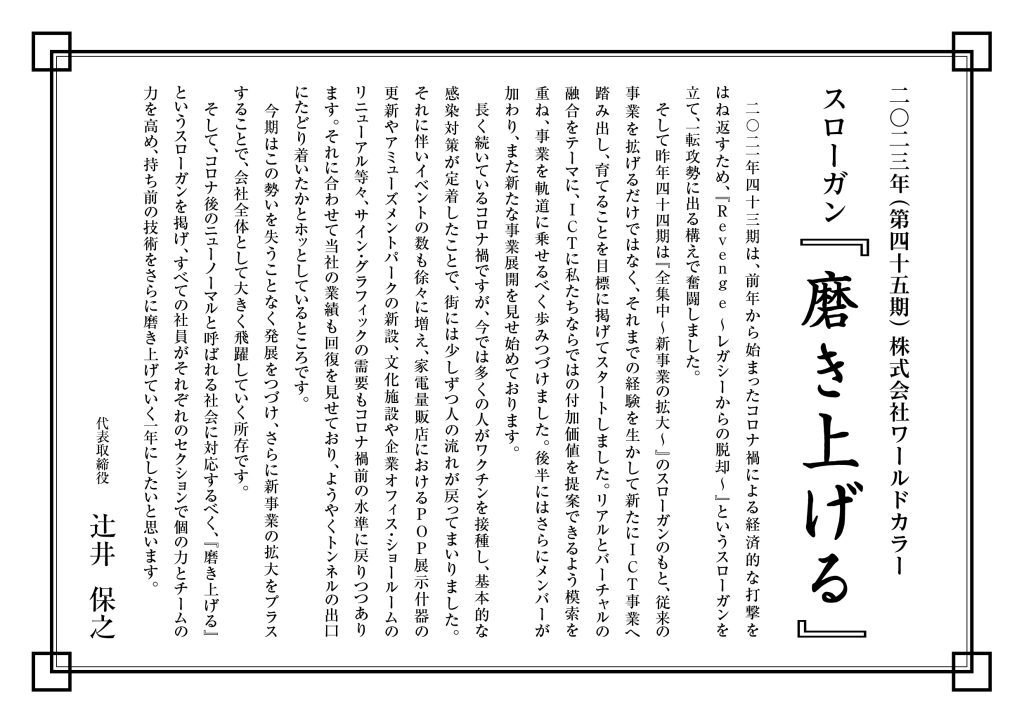 二〇二三年(第四十五期)株式会社ワールドカラー
スローガン『磨き上げる』
二〇二一年四十三期は、前年から始まったコロナ禍による経済的な打撃を
はね返すため、『Revenge ～レガシーからの脱却～』というスローガンを
立て、一転攻勢に出る構えで奮闘しました。
そして昨年四十四期は『全集中～新事業の拡大～』のスローガンのもと、従来の
事業を拡げるだけではなく、それまでの経験を生かして新たにICT事業へ
踏み出し、育てることを目標に掲げてスタートしました。リアルとバーチャルの
融合をテーマに、ICTに私たちならではの付加価値を提案できるよう模索を
重ね、事業を軌道に乗せるべく歩みつづけました。後半にはさらにメンバーが
加わり、また新たな事業展開を見せ始めております。
長く続いているコロナ禍ですが、今では多くの人がワクチンを接種し、基本的な
感染対策が定着したことで、街には少しずつ人の流れが戻ってまいりました。
それに伴いイベントの数も徐々に増え、家電量販店におけるPOP展示什器の
更新やアミューズメントパークの新設、文化施設や企業オフィス・ショールームの
リニューアル等々、サイン・グラフィックの需要もコロナ禍前の水準に戻りつつあり
ます。それに合わせて当社の業績も回復を見せており、ようやくトンネルの出口
にたどり着いたかとホッとしているところです。
今期はこの勢いを失うことなく発展をつづけ、さらに新事業の拡大をプラス
することで、会社全体として大きく飛躍していく所存です。
そして、コロナ後のニューノーマルと呼ばれる社会に対応するべく、『磨き上げる』
というスローガンを掲げ、すべての社員がそれぞれのセクションで個の力とチームの
力を高め、持ち前の技術をさらに磨き上げていく一年にしたいと思います。
代表取締役 辻井 保之